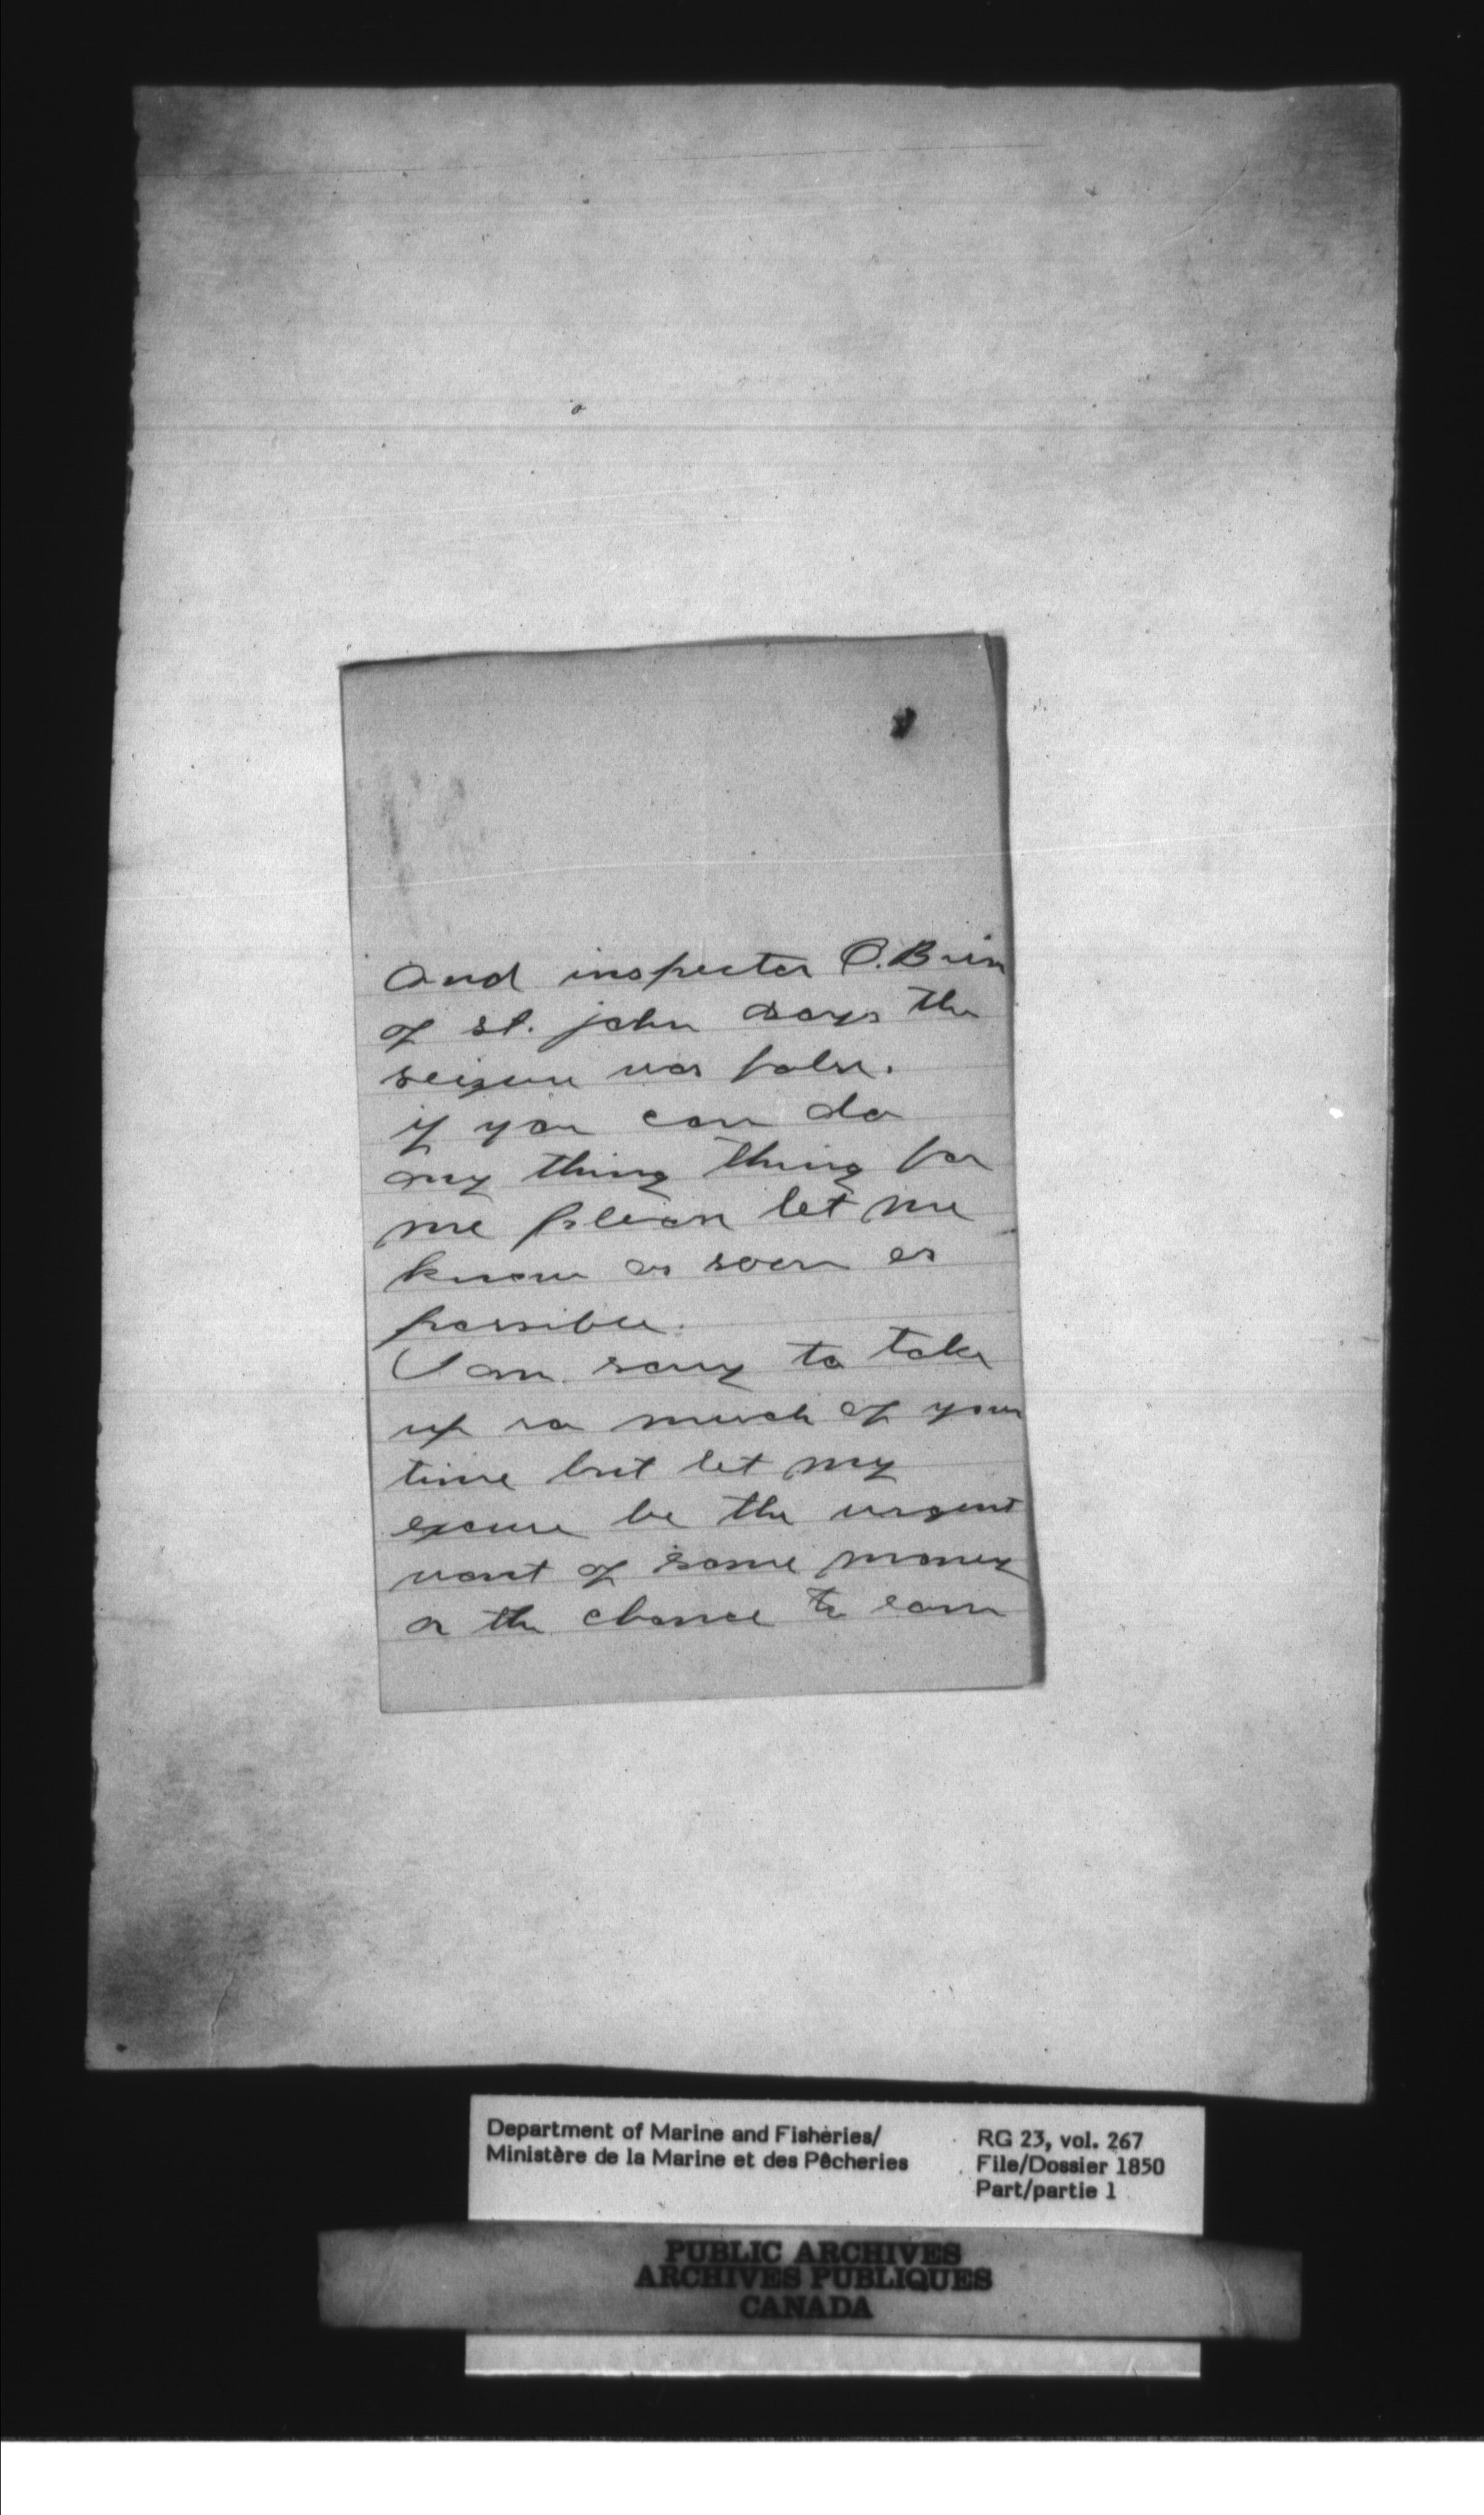 And inspecter O.Brien
of st. john says the
seizure was false.
if you can do
any thing thing for
me please let me
know as soon as
possible.
I am sorry to take
up so much of your
time but let my
excuse be the urgent
want of some money
or the chance to earn
Department of Marine and Fisheries/
Ministère de la Marine et des Pêcheries
RG 23, vol. 267
File/Dossier 1850
Part/partie 1
PUBLIC ARCHIVES
ARCHIVES PUBLIQUES
CANADA